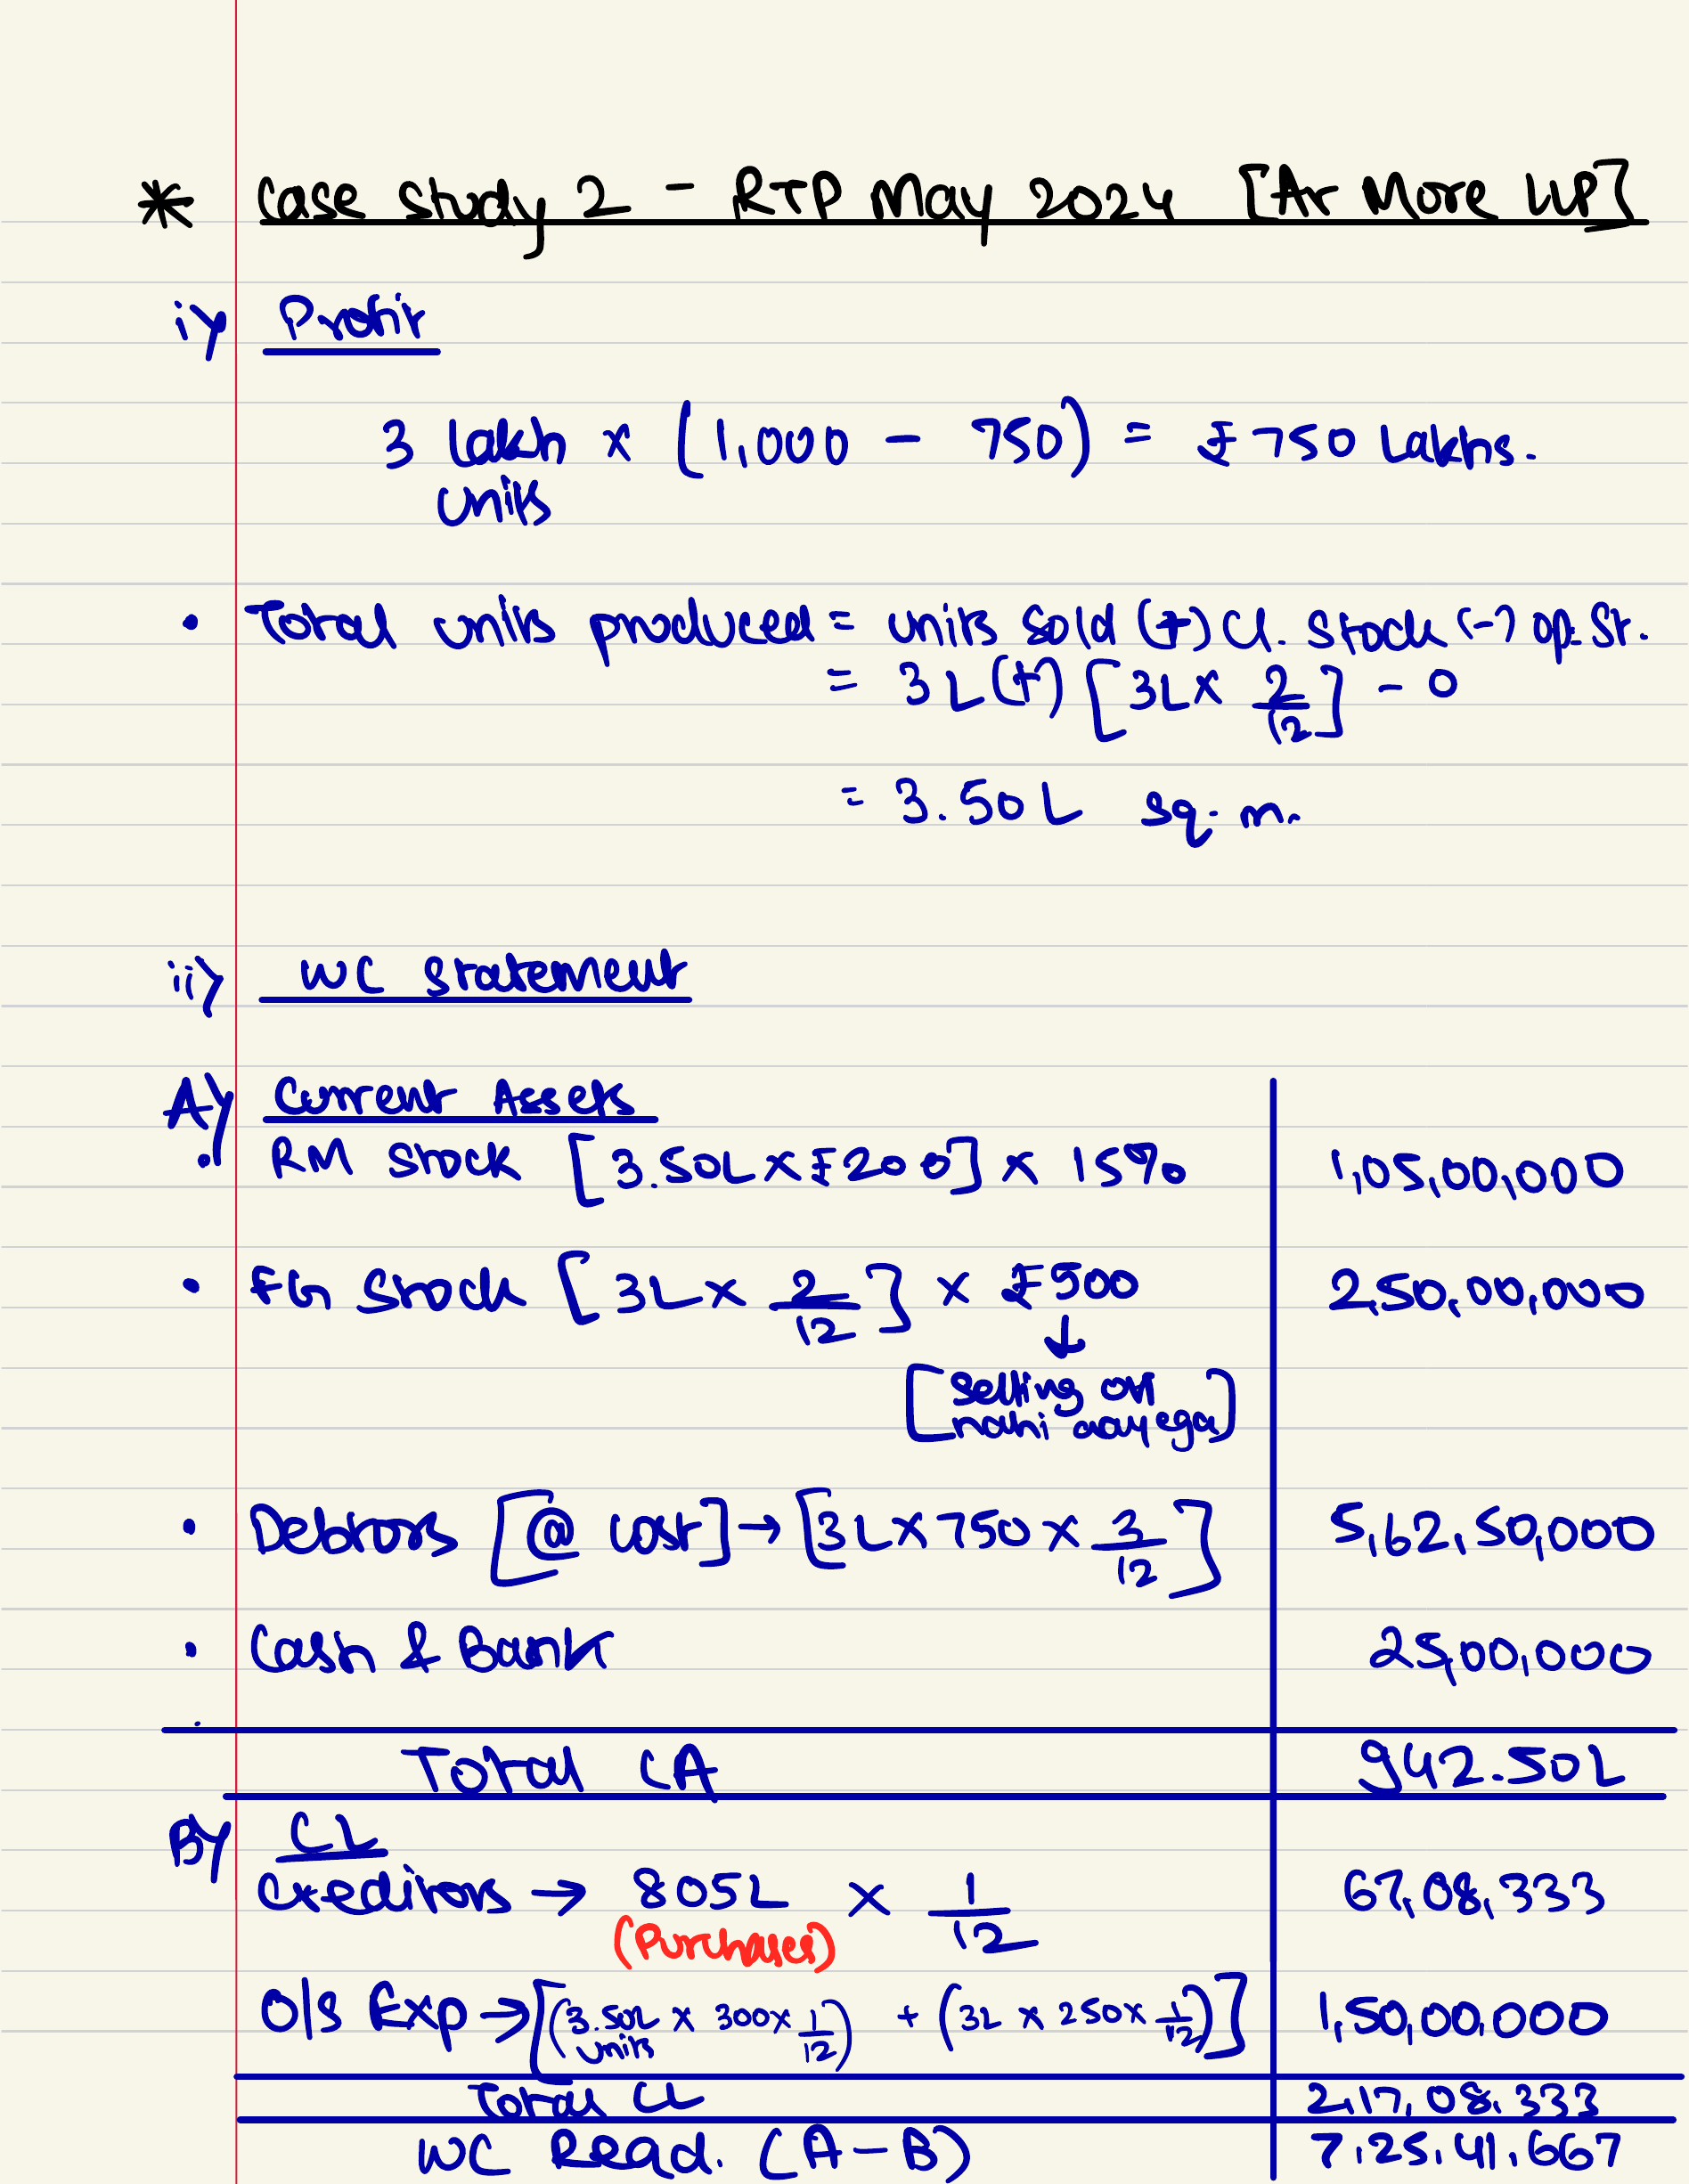 * Case Study 2 - RTP May 2024 [Ar More LLP]
i) Profit
3 lakh x (1,000 - 750) = ₹750 Lakhs.
units
• Total units produced = units sold (+) Cl. Stock (-) op. St.
= 3L (+) [3L x 2/12] - 0
= 3.50L sq. m.
ii) WC Statement
A) Current Assets
• RM Stock [3.50L x ₹200] x 15% 1,05,00,000
• FG Stock [3L x 2/12] x ₹500 2,50,00,000
↓
[Selling OH
nahi aayega]
• Debtors [@ cost] → [3L x 750 x 3/12] 5,62,50,000
• Cash & Bank 25,00,000
Total CA 942.50L
B) CL
Creditors → 805L x 1/12 67,08,333
(Purchases)
O/S Exp → [(3.50L x 300 x 1/12) + (3L x 250 x 1/12)] 1,50,00,000
units
Total CL 2,17,08,333
WC Reqd. (A-B) 7,25,41,667